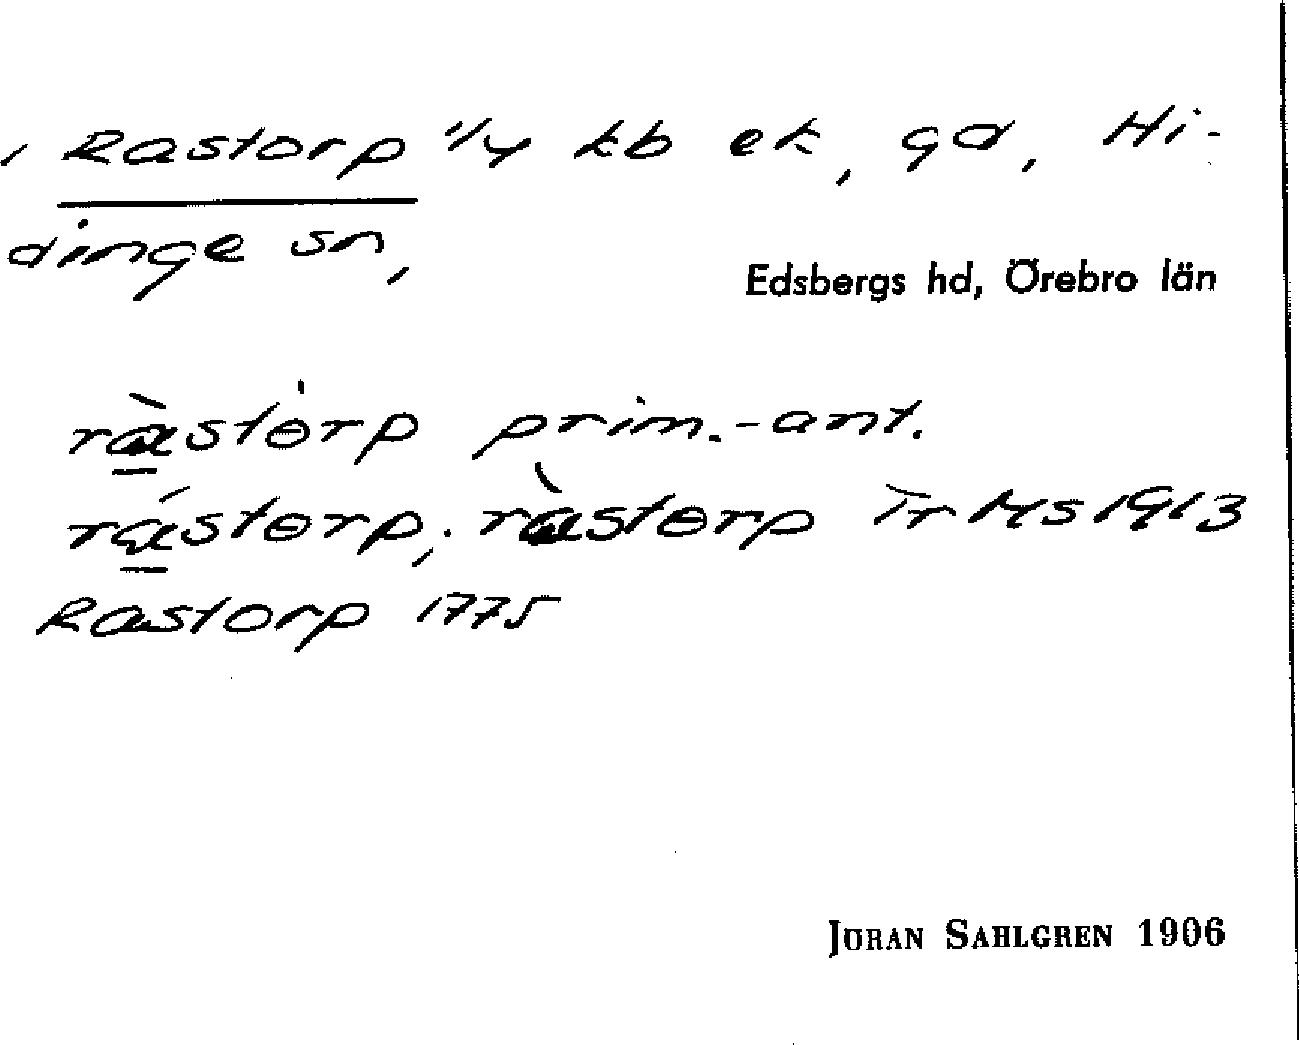 , Rastorp 1/4 kb ek, gd, Hi-
dinge sn,
Edsbergs hd, Örebro län
ràstòrp prim.-ant.
rástorp; ràstɵrp Tr MS 1913
Rastorp 1775
JÖRAN SAHLGREN 1906